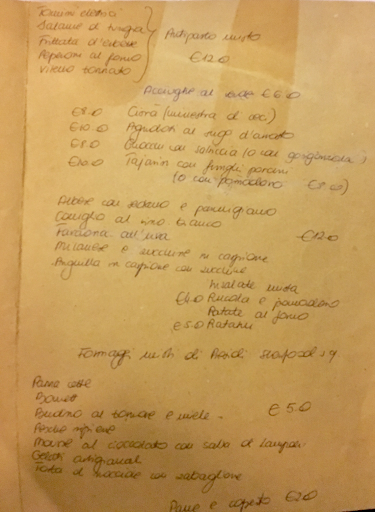 Tomini elettrici
Salame di tu
Frittata d'erbette
Peperoni al forno
Vitello tonnato
Antipasto misto
€12.0
Acciughe al verde €6.0
€8.0 Cisrà (minestra di ceci)
€10.0 Agnolotti al sugo d'arrosto
€8.0 Gnocchi con salsiccia (o con gorgonzola)
€10.0 Tajarin con funghi porcini
(o con pomodoro
con sedano e parmigiano
Coniglio al vino bianco
Faraona all'uva
€12.0
Milanese e zucchine in carpione
Anguilla in carpione con zucchine
Insalate mista
€4.0 Rucola e pomodoro
Patate al forno
€5.0
Formaggi misti di
Panna cotta
Bonet
Budino al torrone e miele
€5.0
Pesche ripiene
Mousse al cioccolato con salsa di lamponi
Gelati artigianali
Torta di nocciole con zabaglione
Pane e coperto €2.0